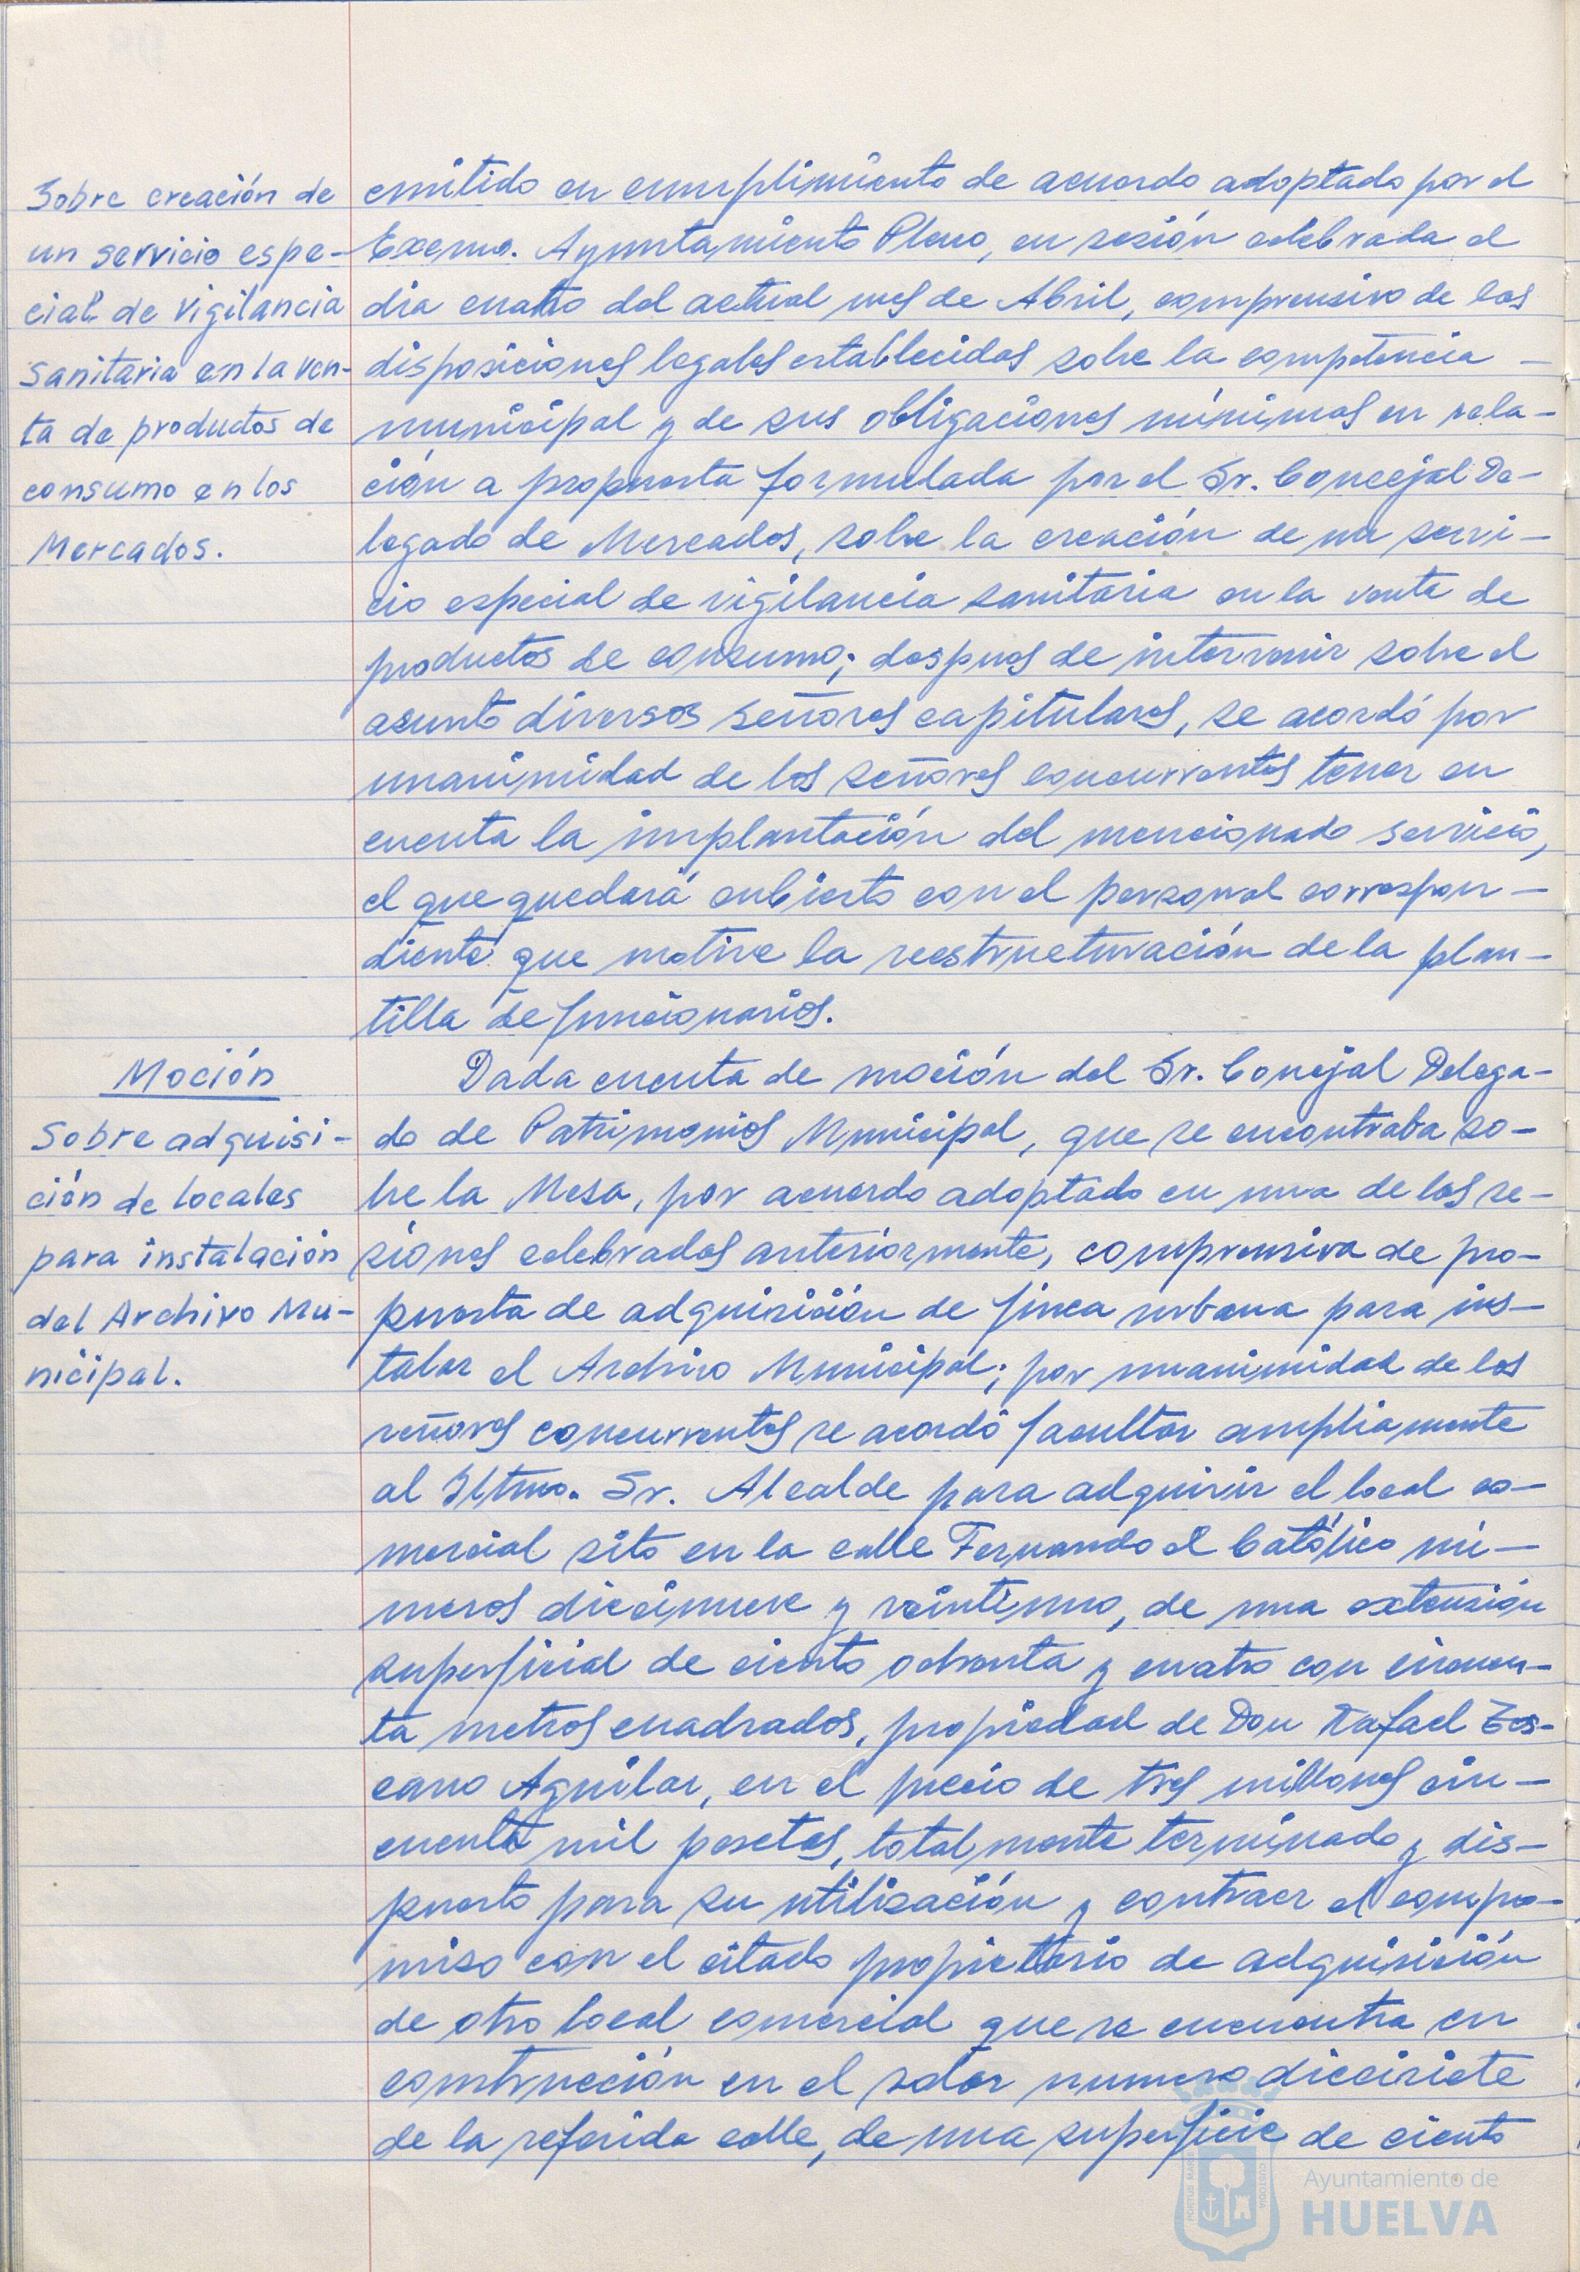 Sobre creación de
un servicio espe-
cial de vigilancia
sanitaria en la ven-
ta de productos de
consumo en los
Mercados.
emitido en cumplimiento de acuerdo adoptado por el
Excmo. Ayuntamiento Pleno, en sesión celebrada el
dia cuatro del actual mes de Abril, comprensivo de las
disposiciones legales establecidas sobre la competencia -
municipal y de sus obligaciones mínimas en rela-
ción a propuesta formulada por el Sr. Concejal De-
legado de Mercados, sobre la creación de un servi-
cio especial de vigilancia sanitaria en la venta de
productos de consumo; despues de intervenir sobre el
asunto diversos señores capitulares, se acordó por
unanimidad de los señores concurrentes tener en
cuenta la implantación del mencionado servicio,
el que quedará cubierto con el personal correspon-
diente que motive la reestructuración de la plan-
tilla de funcionarios.
Moción
Sobre adquisi-
ción de locales
para instalación
del Archivo Mu-
nicipal.
Dada cuenta de moción del Sr. Concejal Delega-
do de Patrimonios Municipal, que se encontraba so-
bre la Mesa, por acuerdo adoptado en una de las se-
siones celebradas anteriormente, comprensiva de pro-
puesta de adquisición de finca urbana para ins-
talar el Archivo Municipal; por unanimidad de los
señores concurrentes se acordó facultar ampliamente
al Iltmo. Sr. Alcalde para adquirir el local co-
mercial sito en la calle Fernando el Católico nú-
meros diecinueve y veintiuno, de una extensión
superficial de ciento ochenta y cuatro con cincuen-
ta metros cuadrados, propiedad de Don Rafael Tos-
cano Aguilar, en el precio de tres millones cin-
cuenta mil pesetas, totalmente terminado y dis-
puesto para su utilización y contraer el compro-
miso con el citado propietario de adquisición
de otro local comercial que se encuentra en
construcción en el solar numero diecisiete
de la referida calle, de una superficie de ciento
PORTUS MARIS
CUSTODIA
Ayuntamiento de
HUELVA